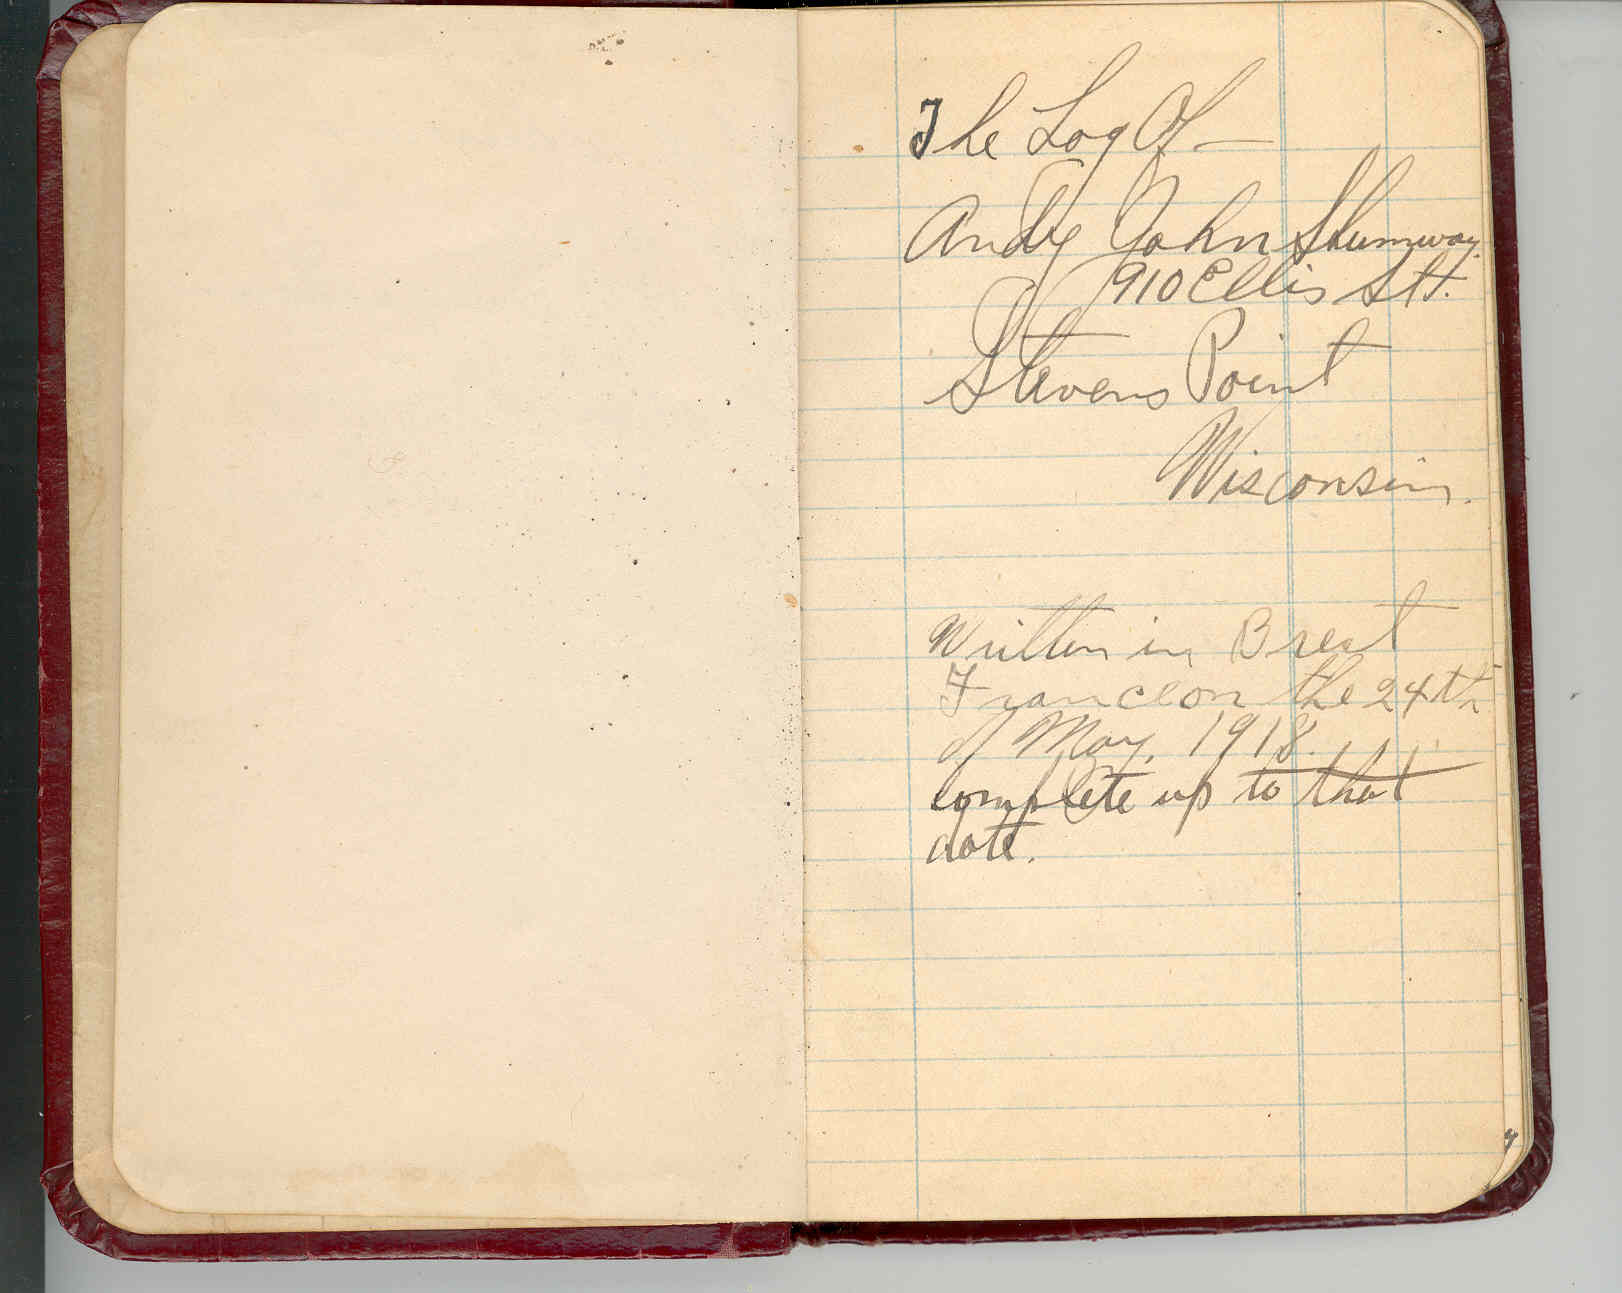 The Log Of —
Andy John Shumway.
910 Ellis St.
Stevens Point
Wisconsin.
Written in Brest
France on the 24th
of May. 1918.
complete up to that
date.